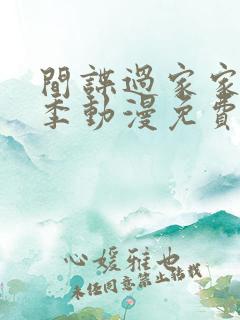 間諜過家家
季動漫免費
心媛雅也
未經同意禁止轉載